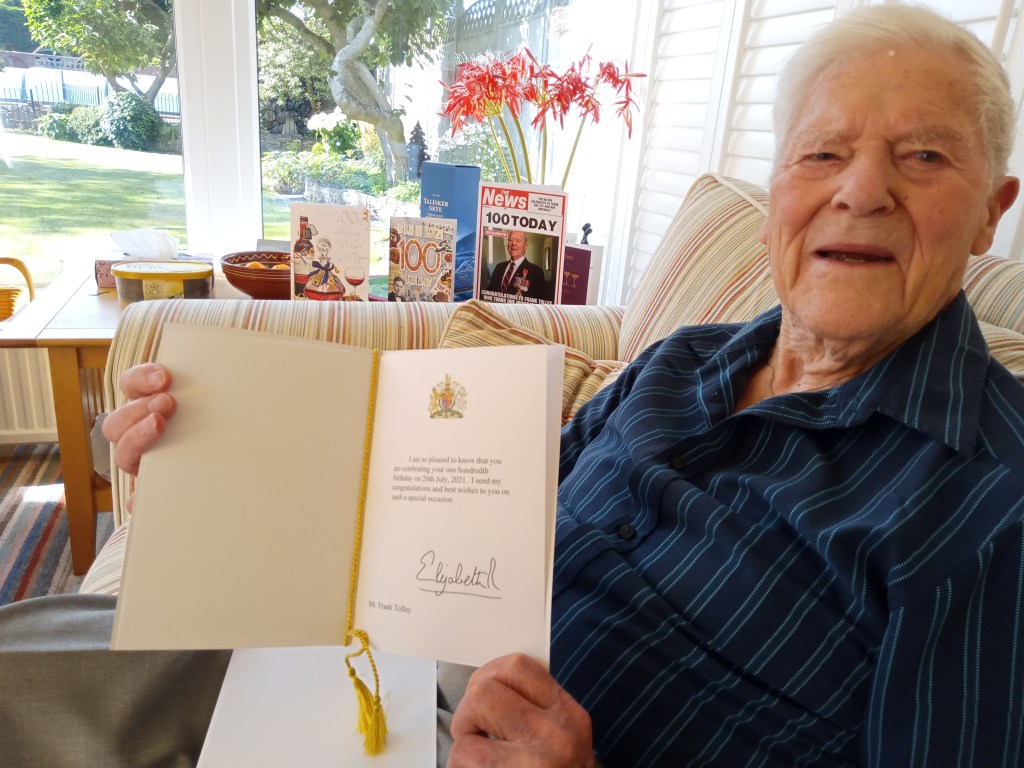 TALISKER
SKYE
THE
News
100 TODAY
CONGRATULATIONS TO FRANK TOLLEY
100
100
I am so pleased to know that you
are celebrating your one hundredth
birthday on 20th July, 2021. I send my
congratulations and best wishes to you on
such a special occasion.
Elizabeth R
Mr. Frank Tolley